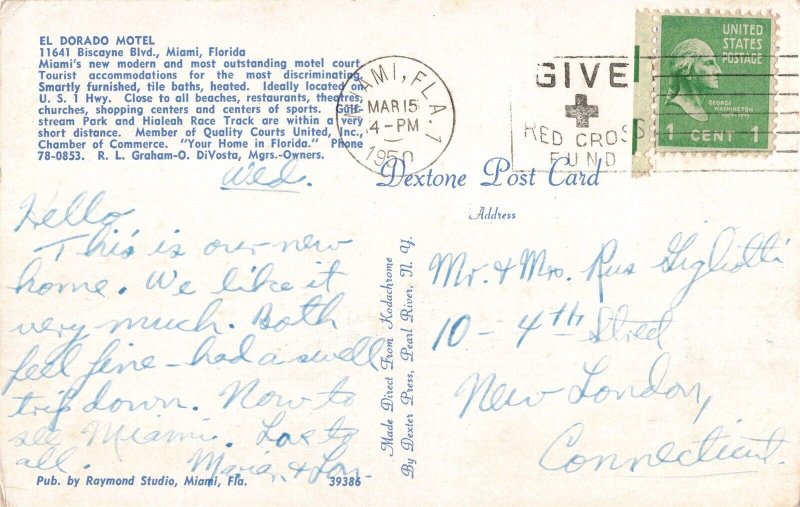 EL DORADO MOTEL
11641 Biscayne Blvd., Miami, Florida
Miami's new modern and most outstanding motel court.
Tourist accommodations for the most discriminating.
Smartly furnished, tile baths, heated. Ideally located on
U. S. 1 Hwy. Close to all beaches, restaurants, theatres,
churches, shopping centers and centers of sports. Gulf-
stream Park and Hialeah Race Track are within a very
short distance. Member of Quality Courts United, Inc.,
Chamber of Commerce. "Your Home in Florida." Phone
78-0853. R. L. Graham-O. DiVosta, Mgrs.-Owners.
MIAMI, FLA. 1
MAR 15
4-PM
1950
GIVE
RED CROSS
FUND
UNITED
STATES
POSTAGE
GEORGE
WASHINGTON
1789-1797
1 CENT 1
Dextone Post Card
Address
Wed.
Hello
This is our new
home. We like it
very much. Both
feel fine - had a swell
trip down. Now to
see Miami. Love to
all. Marian & Lou.
Made Direct From Kodachrome
By Dexter Press, Pearl River, N. Y.
Mr. & Mrs. Rus Gigliotti
10 - 4th Street
New London,
Connecticut.
Pub. by Raymond Studio, Miami, Fla.
39386